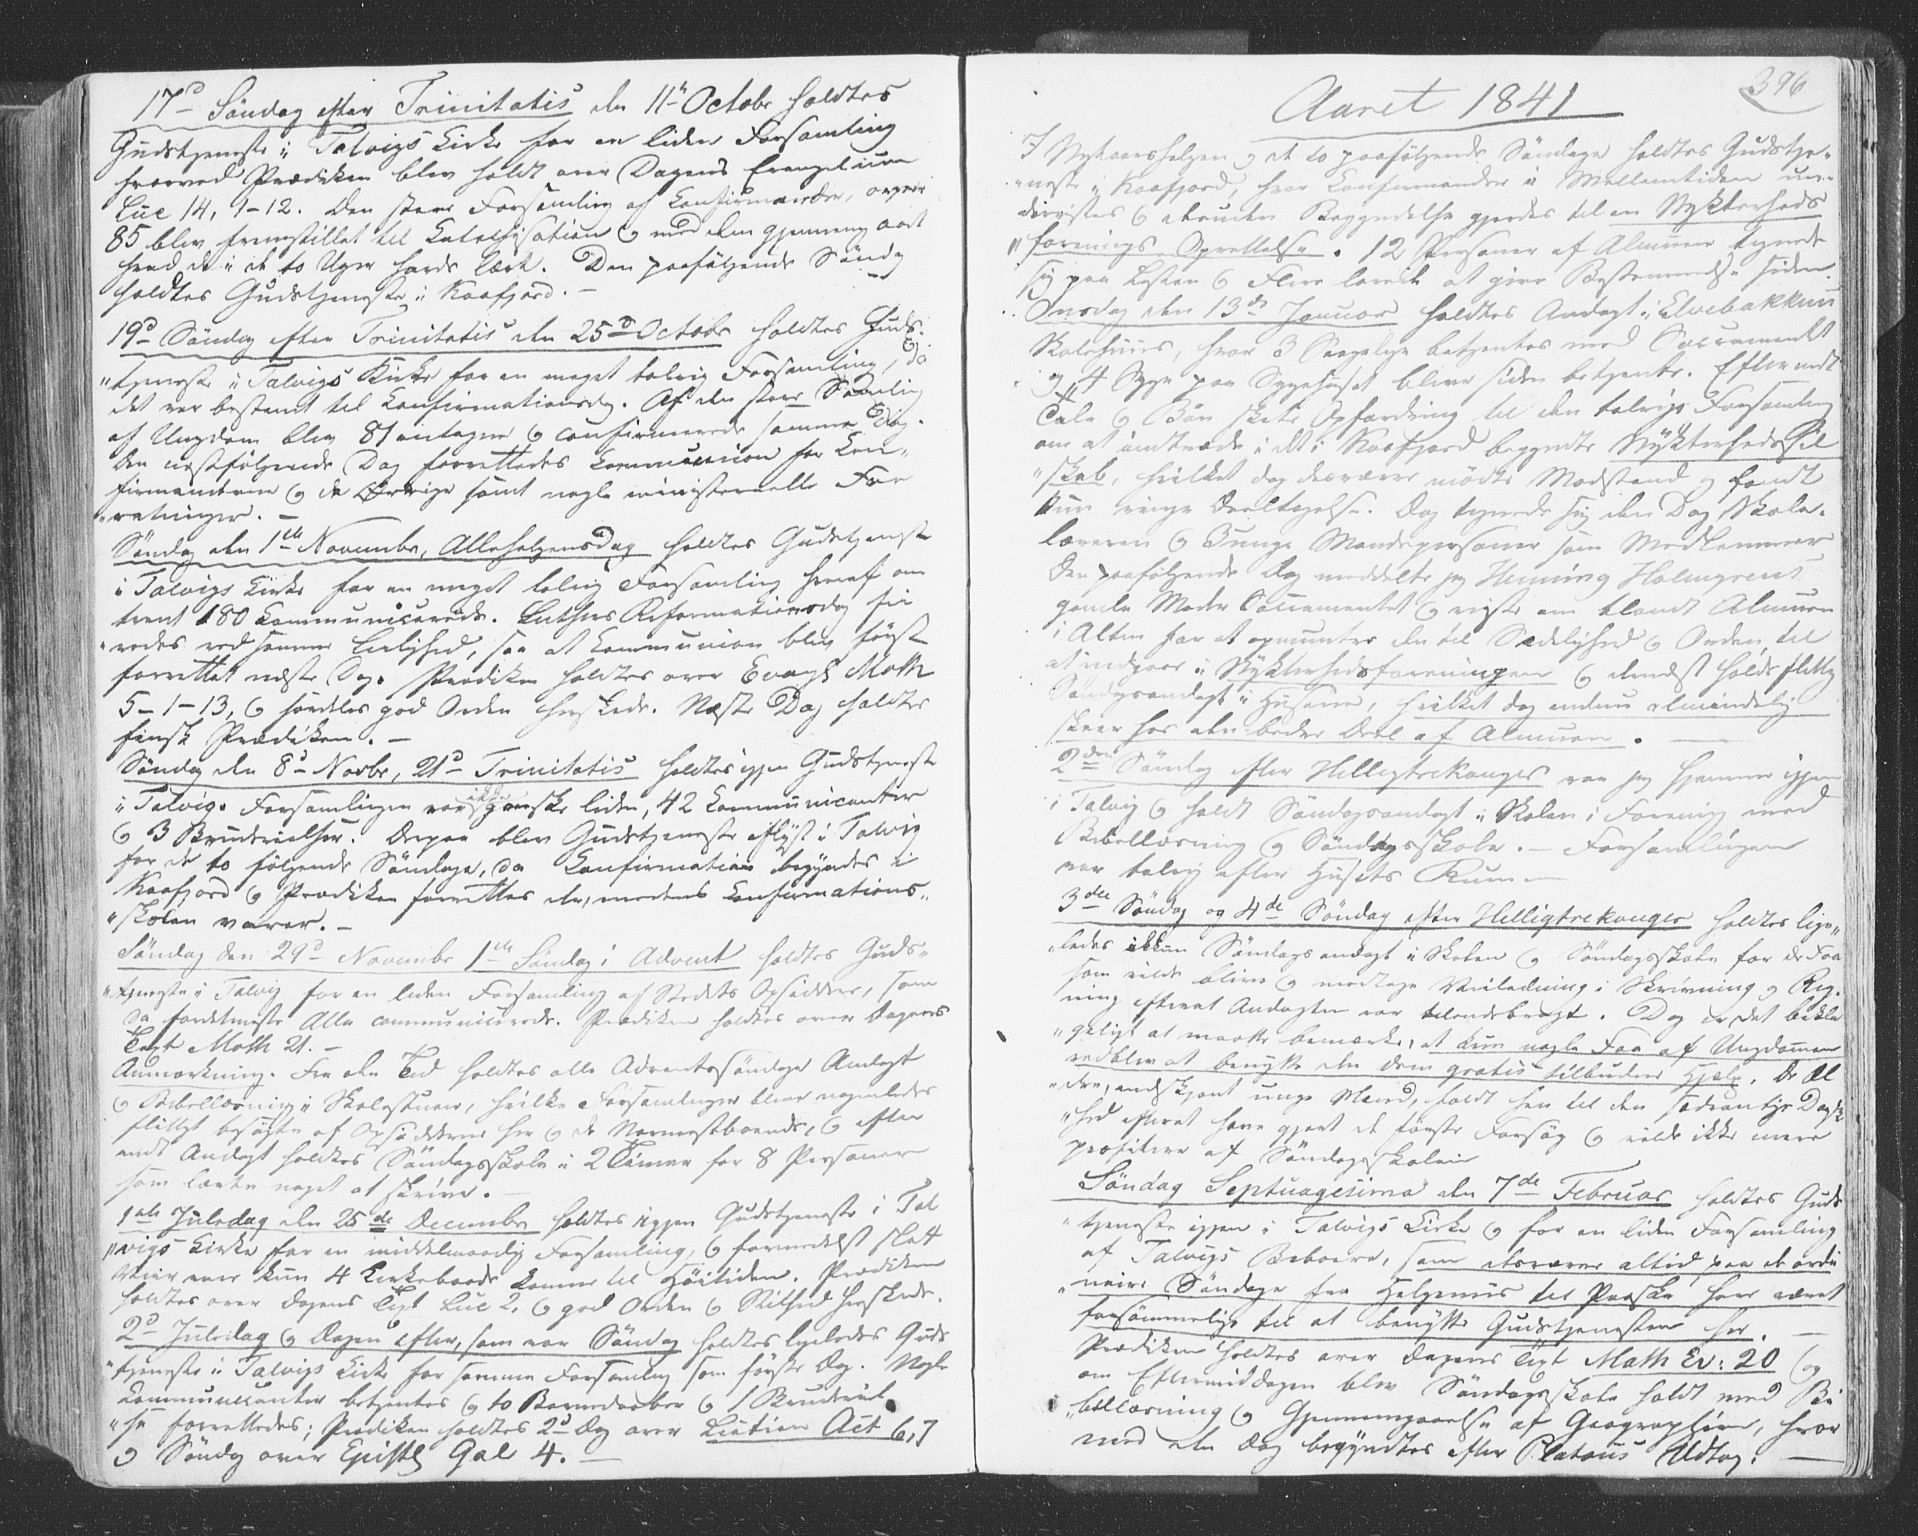 17d Søndag efter Trinitatis den 11te Octobr holdtes
Gudstjeneste i Talvigs Kirke for en liden Forsamling
hvorved Prædiken blev holdt over Dagens Evangelium
Luc 14, 1-12. Den store Forsamling af Confirmander, over
85 blev fremstillet til Catechisation og med dem gjennemgaaet
hvad de i de to Uger havde lært. Den paafølgende Søndag
holdtes Gudstjeneste i Kaafjord. -
19d Søndag efter Trinitatis den 25d Octobr holdtes Guds-
"tjeneste i Talvigs Kirke for en meget talrig Forsamling, da
det var bestemt til Confirmationsdag. Af den store Samling
af Ungdom blev 81 antagne og confirmerede samme Dag.
Den næstfølgende Dag forrettedes Communion for Con-
firmanderne og de Øvrige samt nogle ministerielle For
"retninger. -
Søndag den 1ste November, Allehelgensdag holdtes Gudstjeneste
i Talvigs Kirke for en meget talrig Forsamling hvoraf om
trent 180 Communicerede. Luthers Reformationsdag fei
"redes ved samme Leilighed, saa at Communion blev først
forrettet næste Dag. Prædiken holdtes over Evangl Math
5-1-13, og særdeles god Orden herskede. Næste Dag holdtes
finsk Prædiken. -
Søndag den 8d Novbr, 21d Trinitatis holdtes igjen Gudstjeneste
i Talvig. Forsamlingen var ikke ganske liden, 42 Communicanter
og 3 Brudevielser. Derpaa blev Gudstjeneste aflyst i Talvig
for de to følgende Søndage, da Confirmation begyndes i
Kaafjord og Prædiken forrettes der, medens Confirmations-
"skolen varer. -
Søndag den 29d November 1ste Søndag i Advent holdtes Guds-
"tjeneste i Talvig for en liden Forsamling af Stedets Opsiddere, som
da fordetmeste Alle communicerede. Prædiken holdtes over Dagens
Text Math 21. -
Anmærkning. Fra den Tid holdtes alle Adventssøndage Andagt
og Bibellæsning i Skolestuen, hvilke Forsamlinger bleve nogenledes
flittigt besøgte af Opsidderne her og de Nærmestboende, og efter
endt Andagt holdtes Søndagsskole i 2 Timer for 8 Personer
som lærte noget at skrive. -
1ste Juledag den 25de December holdtes igjen Gudstjeneste i Tal
"vigs Kirke for en middelmaadig Forsamling, og formedelst slet
Veir vare kun 4 Kirkebaade komne til Høitiden. Prædiken
holdtes over Dagens Text Luc 2, og god Orden og Stilhed herskede.
2d Juledag og Dagen efter, som var Søndag holdtes ligeledes Guds
"tjeneste i Talvigs Kirke for samme Forsamling som første Dag. Nogle
Communicanter betjentes og to Barnedaaber og 1 Brudeviel
"se forrettedes; Prædiken holdtes 2d Dag over Lectien Act 6,7
og Søndag over Epistl Gal 4. -
396
Aaret 1841
I Nytaarshelgen og de to paafølgende Søndage holdtes Gudstje-
"neste i Kaafjord, hvor Confirmander i Mellemtiden un-
dervistes og desuden Begyndelse gjordes til en Nykterheds
"forenings Oprettelse. 12 Personer af Almuen tegnede
sig paa Listen og Flere lovede at give Bestemmelse siden.
Onsdag den 13de Januar holdtes Andagt i Elvebakkens
Skolehuus, hvor 3 Svagelige betjentes med Sacramentet
og 4 Syge paa Sygehuset bleve siden betjente. Efter endt
Tale og Bøn skete Opfordring til den talrige Forsamling
om at indtræde i det i Kaafjord begyndte Nykterhedssel
"skab, hvilket dog desværre mødte Modstand og fandt
kun ringe Deeltagelse. Dog tegnede sig den Dag Skole-
læreren og Mandspersoner som Medlemmer
Den paafølgende Dag meddelte jeg Henning Holmgrens
gamle Moder Sacramentet og reiste om blandt Almuen
i Alten for at opmuntre den til Sædelighed og Orden, til
at indgaae i Nykterhedsforeningen og dernæst holde flittig
Søndagsandagt i Husene, hvilket dog endnu almindelig
skeer hos den bedre Deel af Almuen. -
2den Søndag efter Helligtrekonger var jeg hjemme igjen
i Talvig og holdt Søndagsandagt i Skolen i Forening med
Bibellæsning og Søndagsskole. - Forsamlingen
var talrig efter Husets Rum -
3die Søndag og 4de Søndag efter Helligtrekonger holdtes lige-
"ledes ikkun Søndagsandagt i Skolen og Søndagsskole for de Faa
som vilde blive og modtage Veiledning i Skrivning og Reg-
ning efterat Andagten var tilendebragt. Dog er det bekla
"geligt at maatte bemærke, at kun nogle Faa af Ungdommen
vedblev at benytte den dem gratis tilbudne Hjælp. De Æl
"dre, endskjønt unge Mænd, holdt hen til den
"hed efterat have gjort et første Forsøg og vilde ikke mere
profitere af Søndagsskolen
Søndag Septuagesima den 7de Februar holdtes Guds
"tjeneste igjen i Talvigs Kirke og for en liden Forsamling
af Talvigs Beboere, som desværre altid paa de ordi
"naire Søndage fra Helgemis til Paaske have været
forsømmelige til at benytte Gudstjenesten her. -
Prædiken holdtes over Dagens Text Math Ev: 20 og
om Eftermiddagen blev Søndagsskole holdt med Bi
"bellæsning og Gjennemgaaelse af Geographien, hvor
med den Dag begyndtes efter Platous Udtog. -